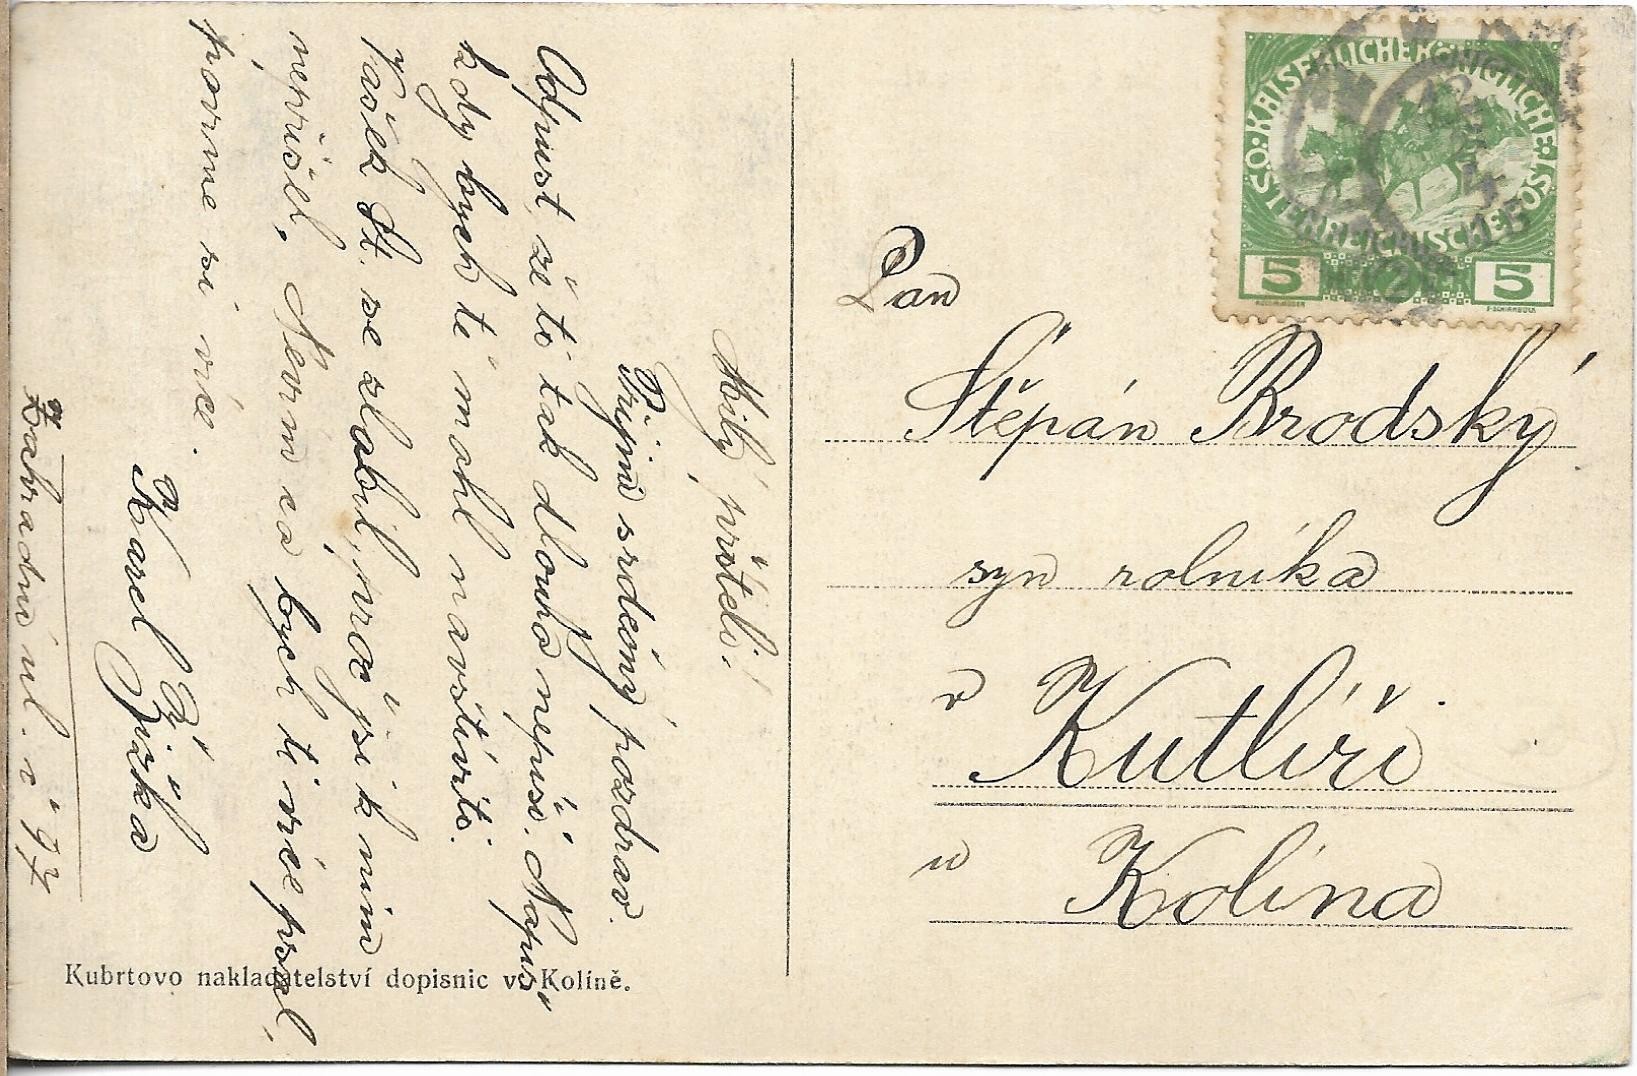 Milý příteli!
Přijmi srdečný pozdrav.
Odpusť, že to tak dlouho nepíši. Napiš
kdy bych tě mohl navštívit.
Vašek St. se zlobil, proč jsi k nim
nepřišel. Nevím co bych ti více psal,
povíme si víc.
Karel Žižka
Zahradní ul. č
Kubrtovo nakladatelství dopisnic v Kolíně.
KAISERLICHEKÖNIGLICHE
ÖSTERREICHISCHEPOST
5 5
Pan
Štěpán Brodský
syn rolníka
v Kutlíři
u Kolína